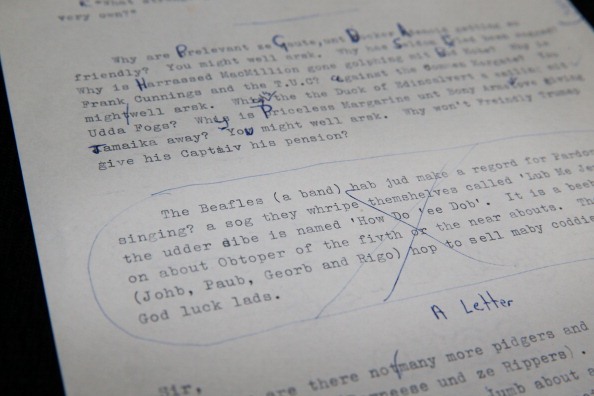 K "What
very won?"
Why are Prelevant ze Gaute, unt Docker
friendly? You might well arsk. Why has
Why is Harrassed MacMillion gone golphing mit
Frank Cunnings and the T.U.C? against the
might well arsk. Why is the Duck of Edincalvert a
Udda Fogs? Why is Priceless Margarine unt Bony Armslove giving
Jamaika away? You might well arsk. Why won't Freindly Trumap
give his Captaiv his pension?
The Beafles (a band) hab jud make a regord for Pardon
singing? a sog they whripe themshelves called 'Lub Me Jew
the udder dibe is named 'How Do Yee Dob'. It is a beeb
on about Obtoper of the fivth or the near abouts. The
(Johb, Paub, Georb and Rigo) hop to sell maby coddie
God luck lads.
A Letter
Sir,
are there not many more pidgers and
und ze Rippers).
about a